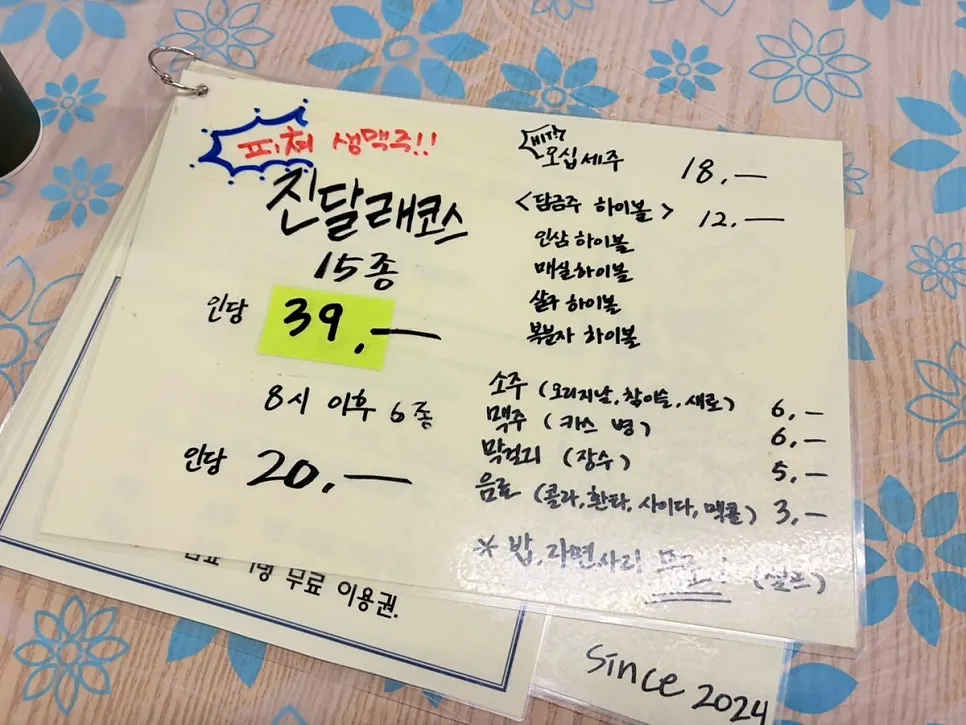 피쳐 생맥주!!
진달래코스
15종
인당 39.—
8시 이후 6종
인당 20.—
HIT!
오십세주 18.—
<담금주 하이볼> 12.—
인삼 하이볼
매실 하이볼
살구 하이볼
복분자 하이볼
소주 (오리지날, 참이슬, 새로) 6.—
맥주 (카스 병) 6.—
막걸리 (장수) 5.—
음료 (콜라, 환타, 사이다, 맥콜) 3.—
* 밥, 라면사리 무료 (셀프)
무료 이용권.
Since 2024